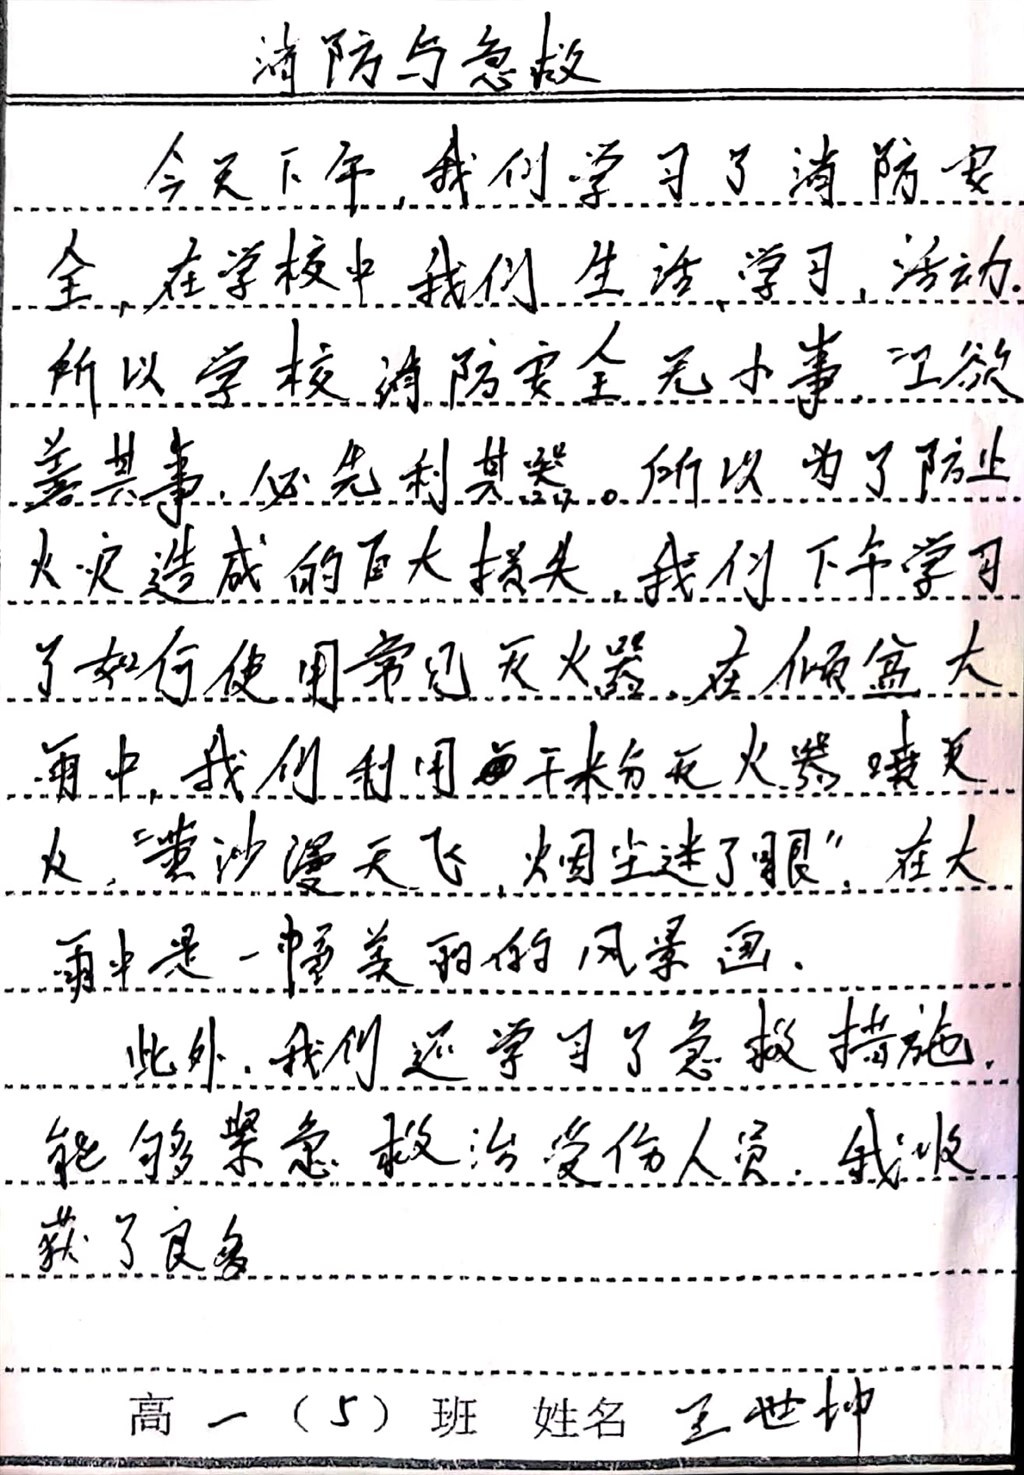 消防与急救
今天下午,我们学习了消防安
全,在学校中我们生活、学习,活动.
所以学校消防安全无小事.工欲
善其事,必先利其器。所以为了防止
火灾造成的巨大损失,我们下午学习
了如何使用常见灭火器.在倾盆大
雨中,我们利用干粉灭火器喷灭
火,“黄沙漫天飞,烟尘迷了眼”,在大
雨中是一幅美丽的风景画.
此外.我们还学习了急救措施,
能够紧急救治受伤人员.我收
获了良多
高一(5)班 姓名 王世坤